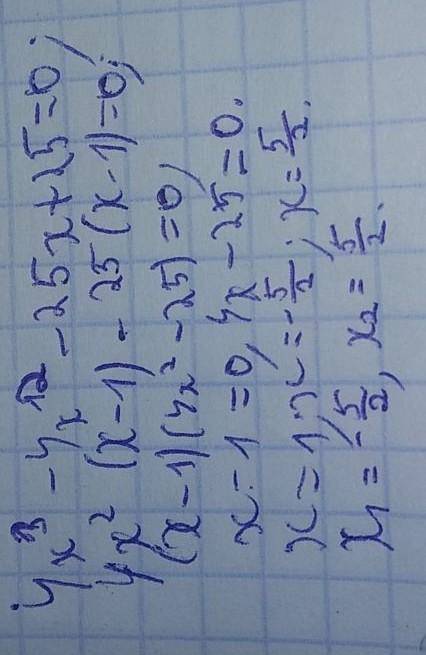 4x³ - 4x² - 25x + 25 = 0;
4x² (x-1) - 25 (x-1) = 0;
(x-1)(4x² - 25) = 0;
x - 1 = 0, 4x - 25 = 0.
x = 1, x = -5/2; x = 5/2.
x₁ = -5/2, x₂ = 5/2.